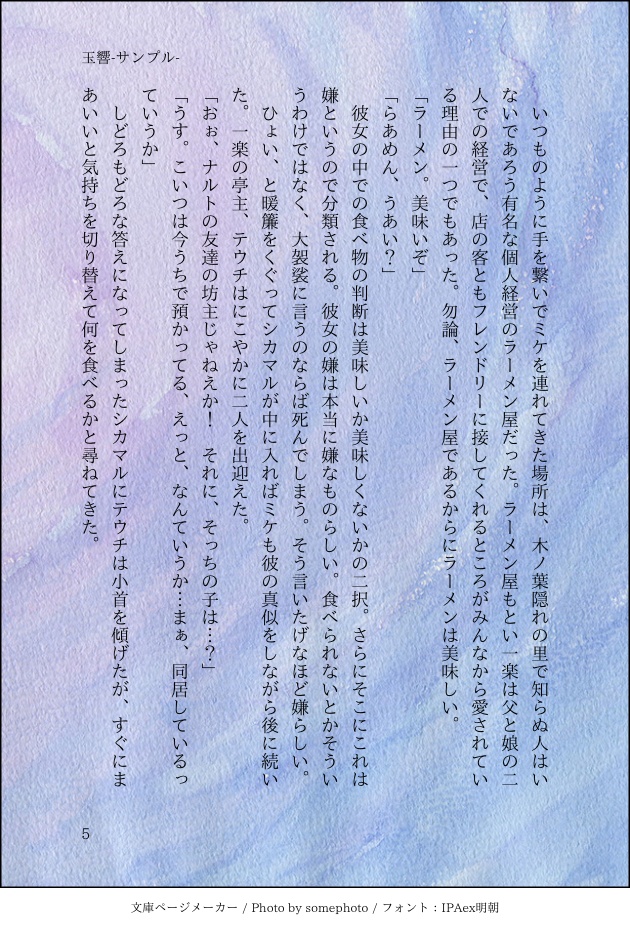 玉響-サンプル-
　いつものように手を繋いでミケを連れてきた場所は、木ノ葉隠れの里で知らぬ人はい
ないであろう有名な個人経営のラーメン屋だった。ラーメン屋もとい一楽は父と娘の二
人での経営で、店の客ともフレンドリーに接してくれるところがみんなから愛されてい
る理由の一つでもあった。勿論、ラーメン屋であるからにラーメンは美味しい。
「ラーメン。美味いぞ」
「らあめん、うあい？」
　彼女の中での食べ物の判断は美味しいか美味しくないかの二択。さらにそこにこれは
嫌というので分類される。彼女の嫌は本当に嫌なものらしい。食べられないとかそうい
うわけではなく、大袈裟に言うのならば死んでしまう。そう言いたげなほど嫌らしい。
　ひょい、と暖簾をくぐってシカマルが中に入ればミケも彼の真似をしながら後に続い
た。一楽の亭主、テウチはにこやかに二人を出迎えた。
「おぉ、ナルトの友達の坊主じゃねえか！　それに、そっちの子は…？」
「うす。こいつは今うちで預かってる、えっと、なんていうか…まぁ、同居しているっ
ていうか」
　しどろもどろな答えになってしまったシカマルにテウチは小首を傾げたが、すぐにま
あいいと気持ちを切り替えて何を食べるかと尋ねてきた。
5
文庫ページメーカー / Photo by somephoto / フォント：IPAex明朝